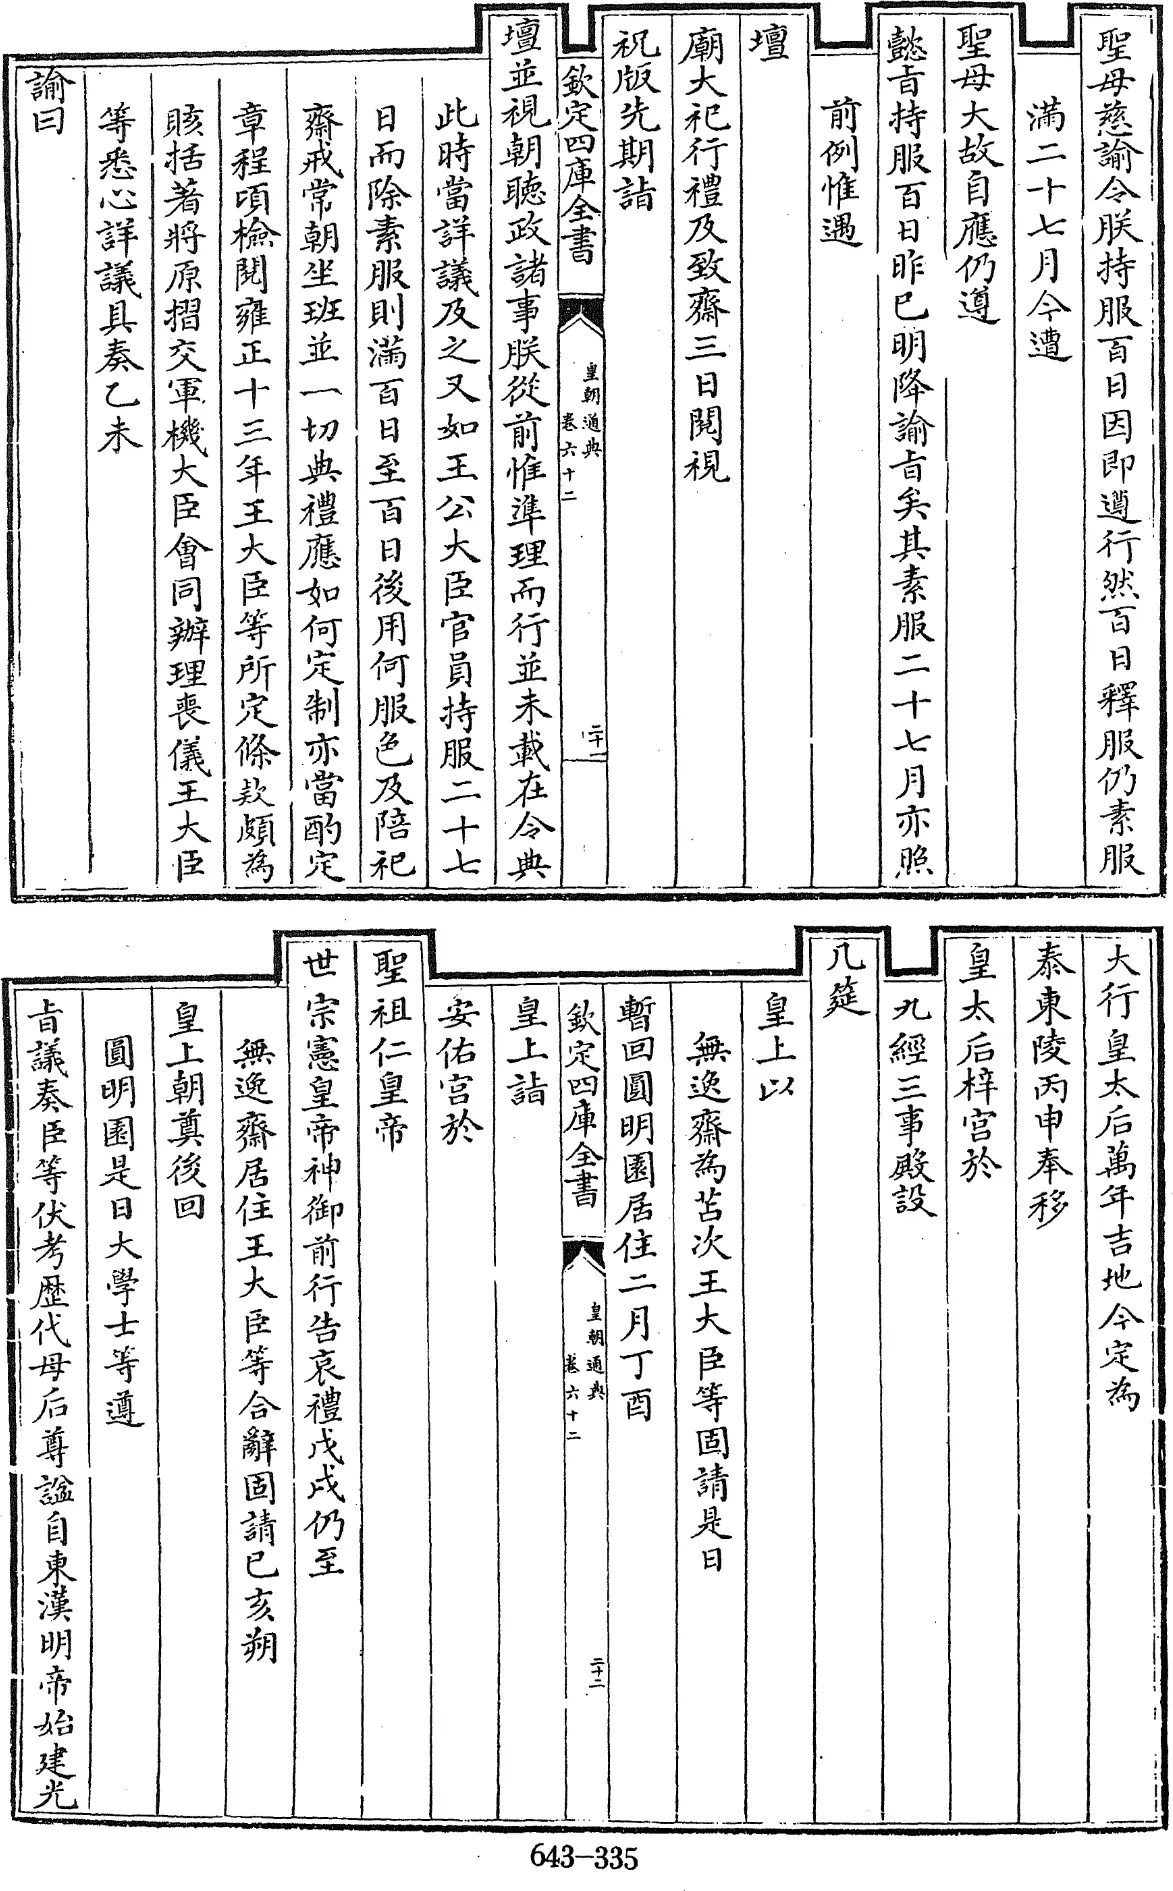 聖母慈諭令朕持服百日因即遵行然百日釋服仍素服
滿二十七月今遭
聖母大故自應仍遵
懿旨持服百日昨已明降諭旨矣其素服二十七月亦照
前例惟遇
壇
廟大祀行禮及致齋三日閱視
祝版先期詣
欽定四庫全書
皇朝通典
卷六十二
二十一
壇並視朝聽政諸事朕從前惟準理而行並未載在令典
此時當詳議及之又如王公大臣官員持服二十七
日而除素服則滿百日至百日後用何服色及陪祀
齋戒常朝坐班並一切典禮應如何定制亦當酌定
章程頃檢閱雍正十三年王大臣等所定條款頗為
賅括著將原摺交軍機大臣會同辦理喪儀王大臣
等悉心詳議具奏乙未
諭曰
大行皇太后萬年吉地今定為
泰東陵丙申奉移
皇太后梓宮於
九經三事殿設
几筵
皇上以
無逸齋為苫次王大臣等固請是日
暫回圓明園居住二月丁酉
欽定四庫全書
皇朝通典
卷六十二
二十二
皇上詣
安佑宮於
聖祖仁皇帝
世宗憲皇帝神御前行告哀禮戊戌仍至
無逸齋居住王大臣等合辭固請己亥朔
皇上朝奠後回
圓明園是日大學士等遵
旨議奏臣等伏考歷代母后尊諡自東漢明帝始建光
643-335